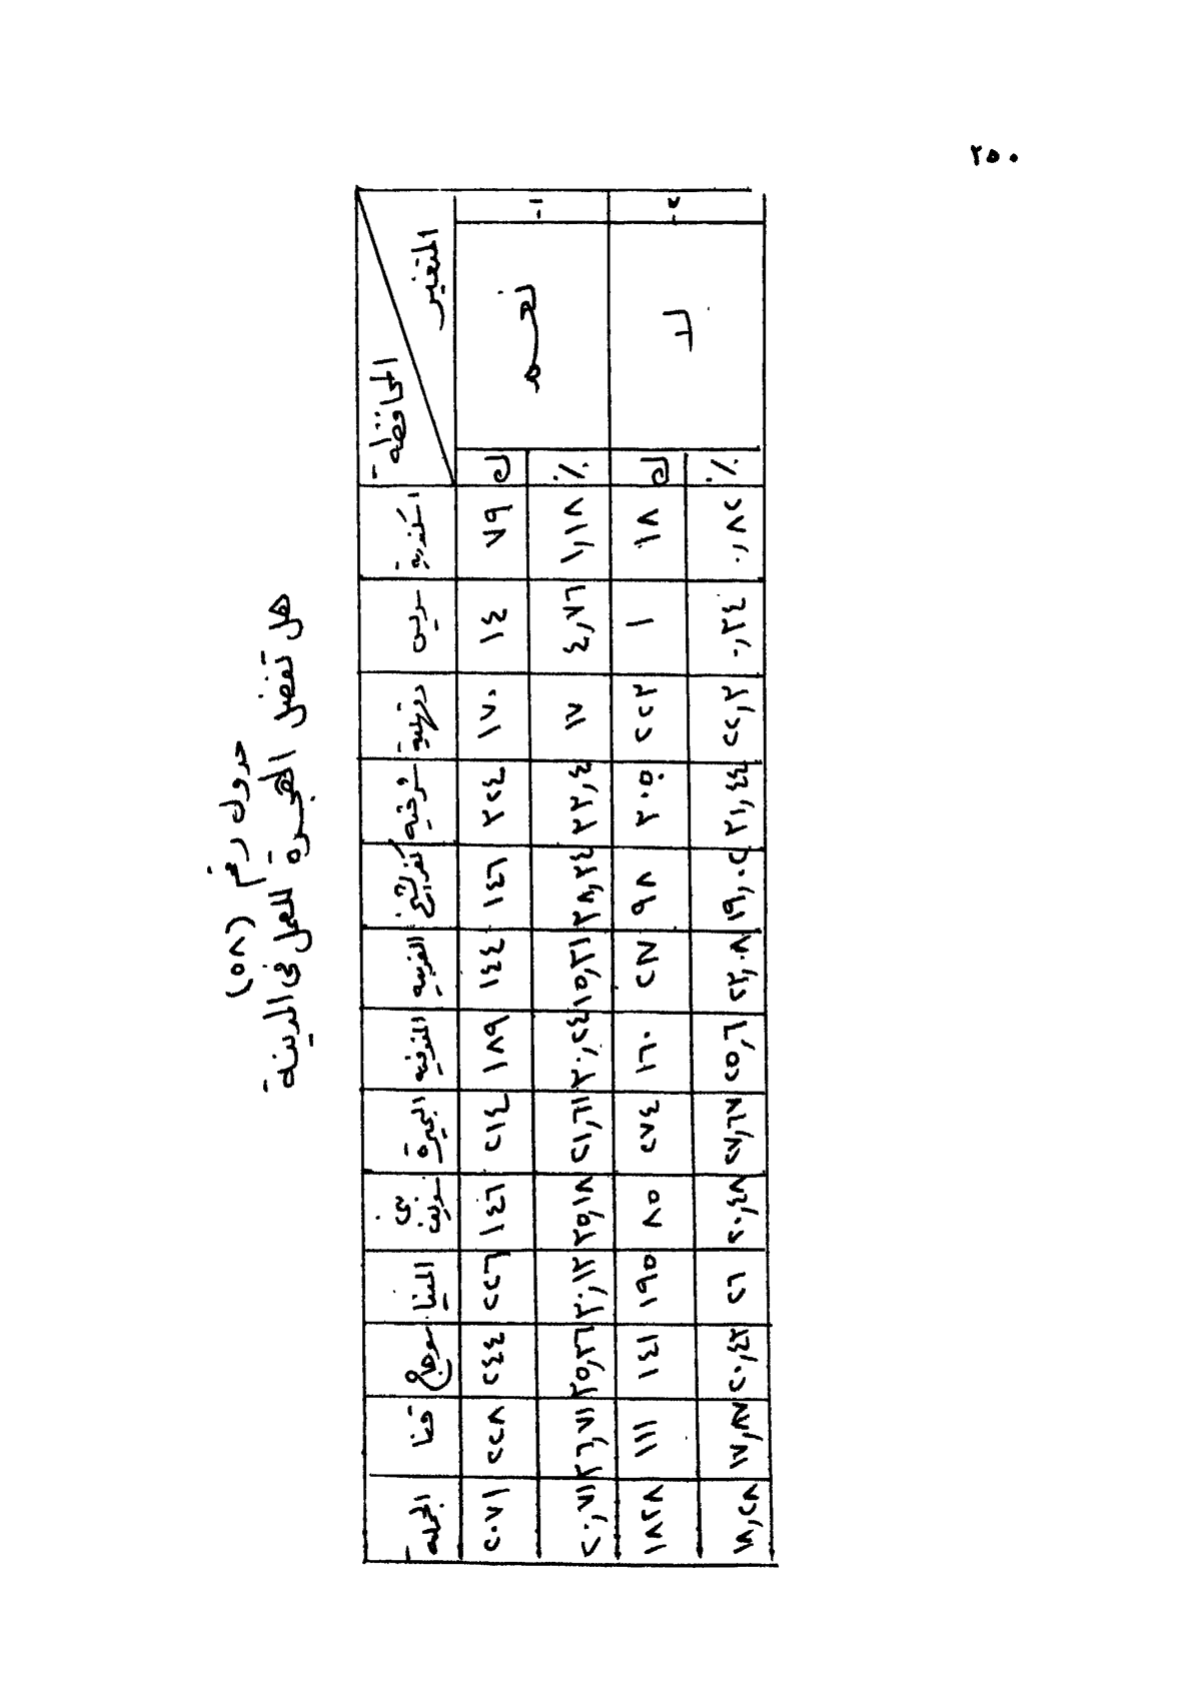 ٢٥٠
جدول رقم (٥٨)
هل تفضل الهجرة للعمل فى المدينة
المتغير المحافظة اسكندرية سويس دقهلية شرقية كفر الشيخ الغربية المنوفية البحيرة بنى سويف المنيا سوهاج قنا الجملة
١- نعم ك ٧٩ ١٤ ١٧٠ ٢٢٤ ١٤٦ ١٤٤ ١٨٩ ٢١٤ ١٤٦ ٢٢٦ ٢٤٤ ٢٢٨ ٢٠٧١
٪ ١١٫٨ ٤٫٧٦ ١٧ ٢٣٫٤ ٢٨٫٣٤ ١٥٫٣١ ٣٠٫٢٤ ٢١٫٦١ ٣٥٫١٨ ٣٠٫١٣ ٣٥٫٣٦ ٣٦٫٧١ ٢٠٫٧١
٢- لا ك ١٨ ١ ٢٢٣ ٣٠٥ ٩٨ ٢٨٧ ١٦٠ ٢٧٤ ٨٥ ١٩٥ ١٤١ ١١١ ١٨٢٨
٪ ٠٫٣٤ ٢٢٫٣ ٣١٫٤٤ ١٩٫٠٢ ٢٣٫٠٨ ٢٥٫٦ ٢٧٫٦٧ ٢٠٫٤٨ ٢٦ ٢٠٫٤٣ ١٧٫٨٧ ١٨٫٢٨